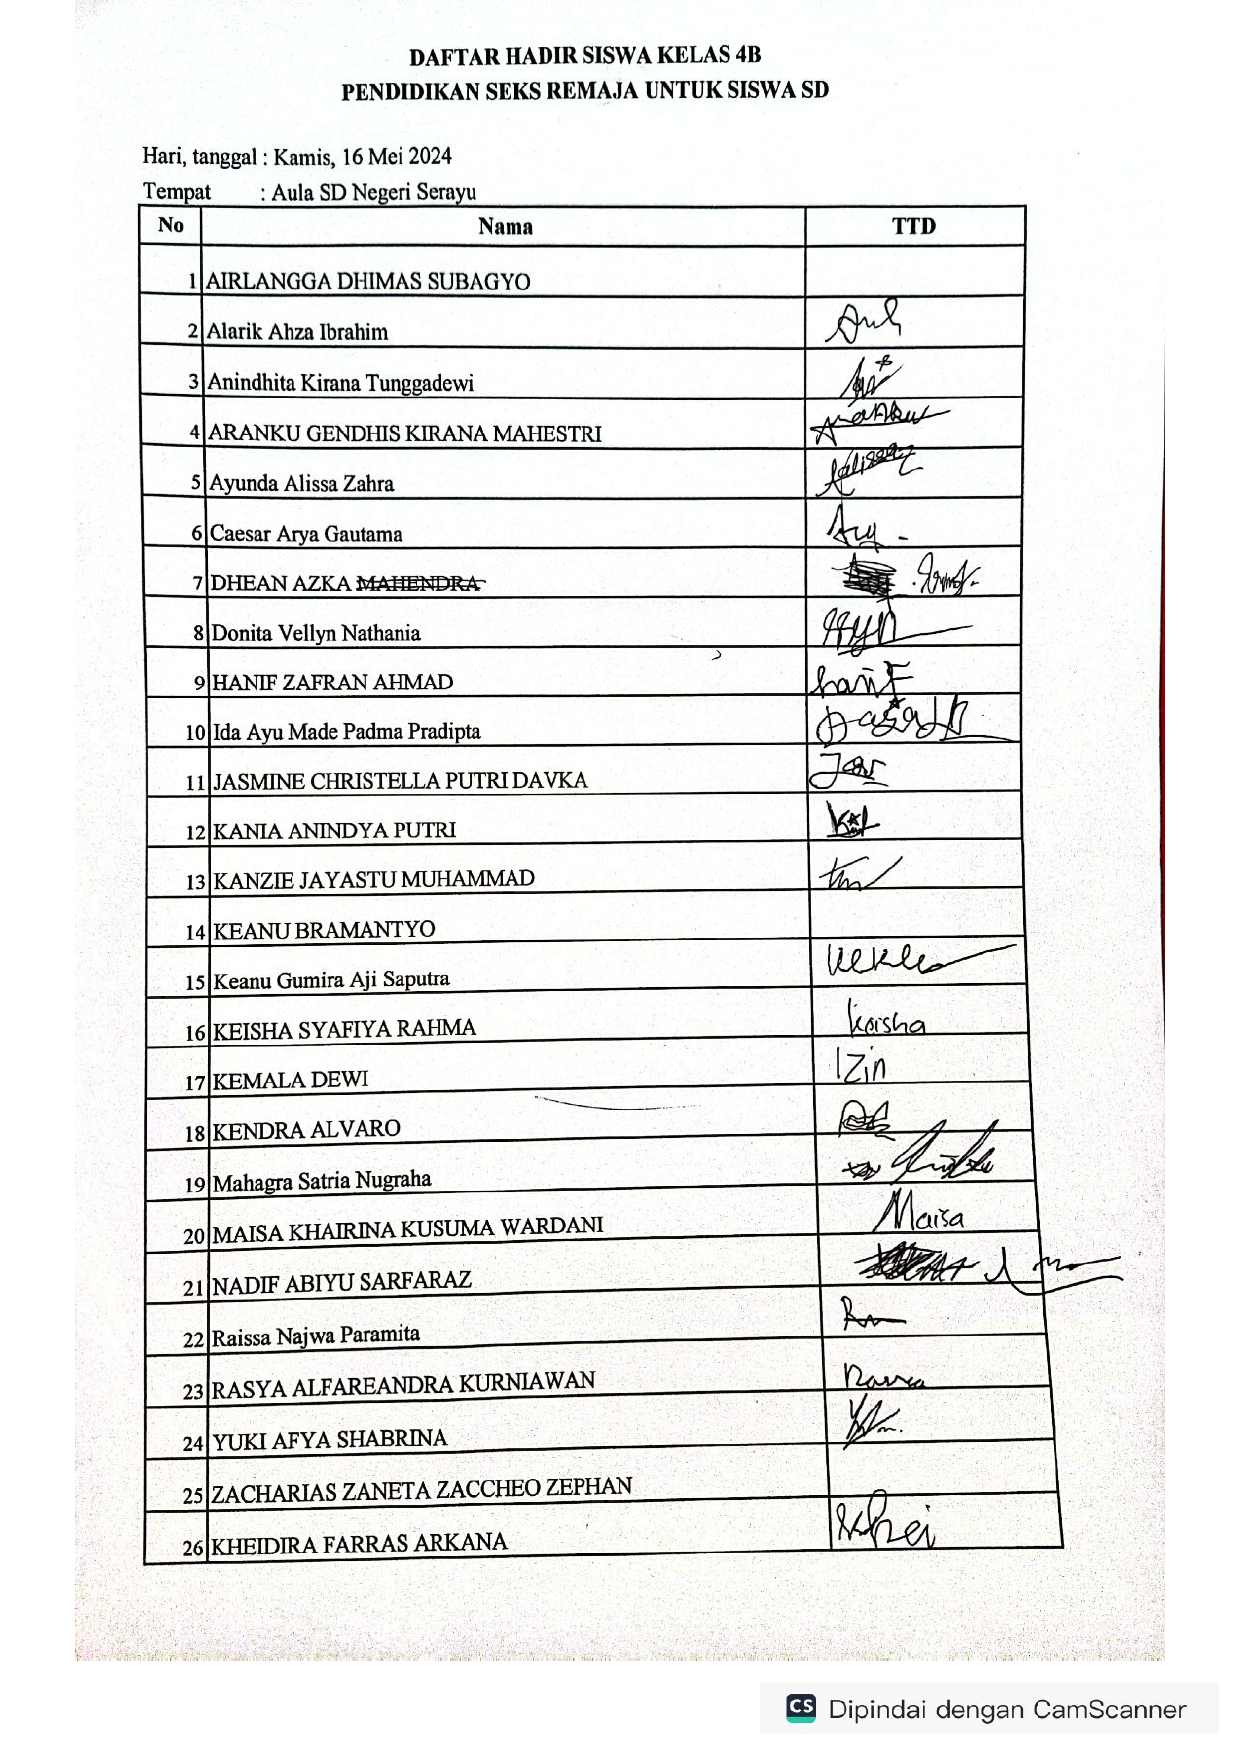 DAFTAR HADIR SISWA KELAS 4B
PENDIDIKAN SEKS REMAJA UNTUK SISWA SD
Hari, tanggal : Kamis, 16 Mei 2024
Tempat : Aula SD Negeri Serayu
No Nama TTD
1 AIRLANGGA DHIMAS SUBAGYO
2 Alarik Ahza Ibrahim
3 Anindhita Kirana Tunggadewi
4 ARANKU GENDHIS KIRANA MAHESTRI
5 Ayunda Alissa Zahra
6 Caesar Arya Gautama
7 DHEAN AZKA MAHENDRA
8 Donita Vellyn Nathania
9 HANIF ZAFRAN AHMAD hanif
10 Ida Ayu Made Padma Pradipta
11 JASMINE CHRISTELLA PUTRI DAVKA
12 KANIA ANINDYA PUTRI
13 KANZIE JAYASTU MUHAMMAD
14 KEANU BRAMANTYO
15 Keanu Gumira Aji Saputra
16 KEISHA SYAFIYA RAHMA Keisha
17 KEMALA DEWI Izin
18 KENDRA ALVARO
19 Mahagra Satria Nugraha
20 MAISA KHAIRINA KUSUMA WARDANI Maisa
21 NADIF ABIYU SARFARAZ
22 Raissa Najwa Paramita
23 RASYA ALFAREANDRA KURNIAWAN
24 YUKI AFYA SHABRINA
25 ZACHARIAS ZANETA ZACCHEO ZEPHAN
26 KHEIDIRA FARRAS ARKANA
CS Dipindai dengan CamScanner